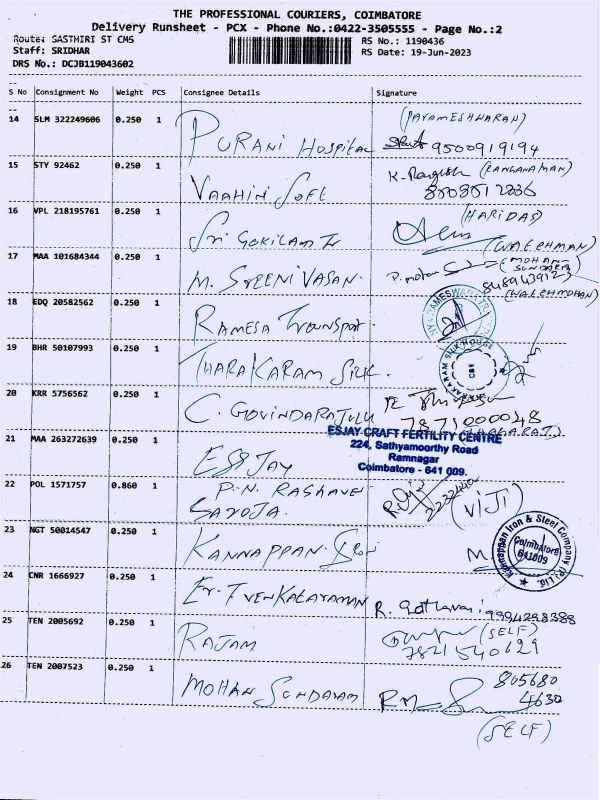 THE PROFESSIONAL COURIERS, COIMBATORE
Delivery Runsheet - PCX - Phone No.:0422-3505555 - Page No.:2
Route: SASTHIRI ST CMS
RS No.: 1190436
Staff: SRIDHAR
RS Date: 19-Jun-2023
DRS No.: DCJB119043602
S No Consignment No Weight PCS Consignee Details Signature
14 SLM 322249606 0.250 1 PURANI HOSPITAL (PARAMESHWARAN)
9500919194
15 STY 92462 0.250 1 VAAHINI SOFT (RANGANATHAN)
16 VPL 218195761 0.250 1 SRI GOKILAM (HARIDAS)
17 MAA 101684344 0.250 1 M. SREENIVASAN. (MOHAN-
SUNDARAM)
18 EDQ 20582562 0.250 1 RAMESA TRANSPORT.
19 BHR 50107993 0.250 1 THARAKARAM SILK.
THARAKARAM SILK HOUSE
CBE
20 KRR 5756562 0.250 1 C. GOVINDARAJULU
7871000048
ESJAY CRAFT FERTILITY CENTRE
224, Sathyamoorthy Road
Ramnagar
Coimbatore - 641 009.
21 MAA 263272639 0.250 1 ESJAY
22 POL 1571757 0.860 1 P.N. RAGHAVE
SAROJA. (VIJI)
23 NGT 50014547 0.250 1 KANNAPPAN IRON
Kannappan Iron & Steel Company (P) Ltd.
Coimbatore
641009
24 CNR 1666927 0.250 1 Er. T VENKATARAMAN R. 9994298388
25 TEN 2005692 0.250 1 RAJAM (SELF)
7821540629
26 TEN 2007523 0.250 1 MOHAN SUNDARAM 805680
4630
(SELF)